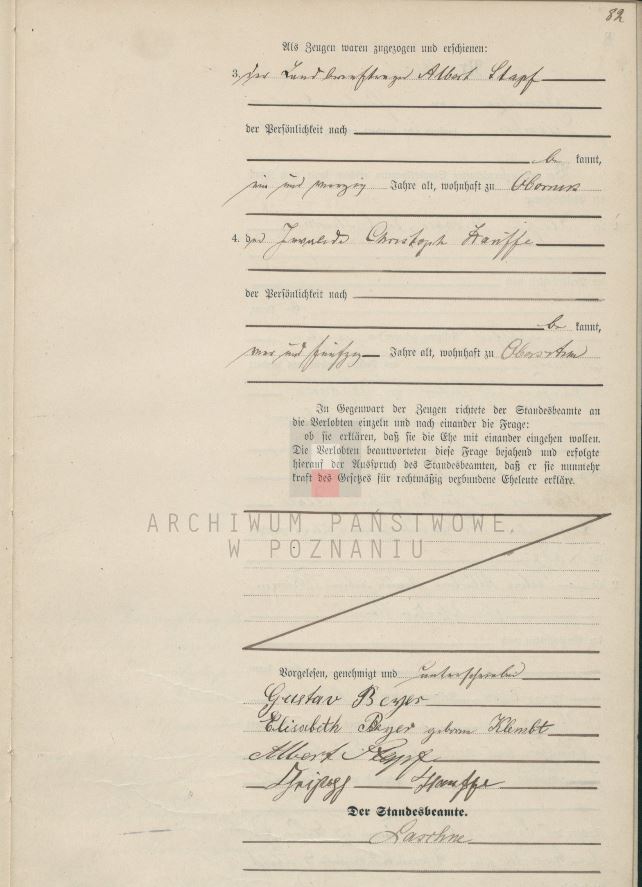 82
Als Zeugen waren zugezogen und erschienen:
3. der Albert Stapf
der Persönlichkeit nach
be kannt,
ein und vierzig Jahre alt, wohnhaft zu Obornik
4. der Invalide Christoph Hauffe
der Persönlichkeit nach
be kannt,
und fünfzig Jahre alt, wohnhaft zu
In Gegenwart der Zeugen richtete der Standesbeamte an
die Verlobten einzeln und nach einander die Frage:
ob sie erklären, daß sie die Ehe mit einander eingehen wollen.
Die Verlobten beantworteten diese Frage bejahend und erfolgte
hierauf der Ausspruch des Standesbeamten, daß er sie nunmehr
kraft des Gesetzes für rechtmäßig verbundene Eheleute erkläre.
ARCHIWUM PAŃSTWOWE
W POZNANIU
Vorgelesen, genehmigt und unterschrieben
Gustav Beyer
Elisabeth Beyer geborene Klembt
Albert Stapf
Hauffe
Der Standesbeamte.
Laschne